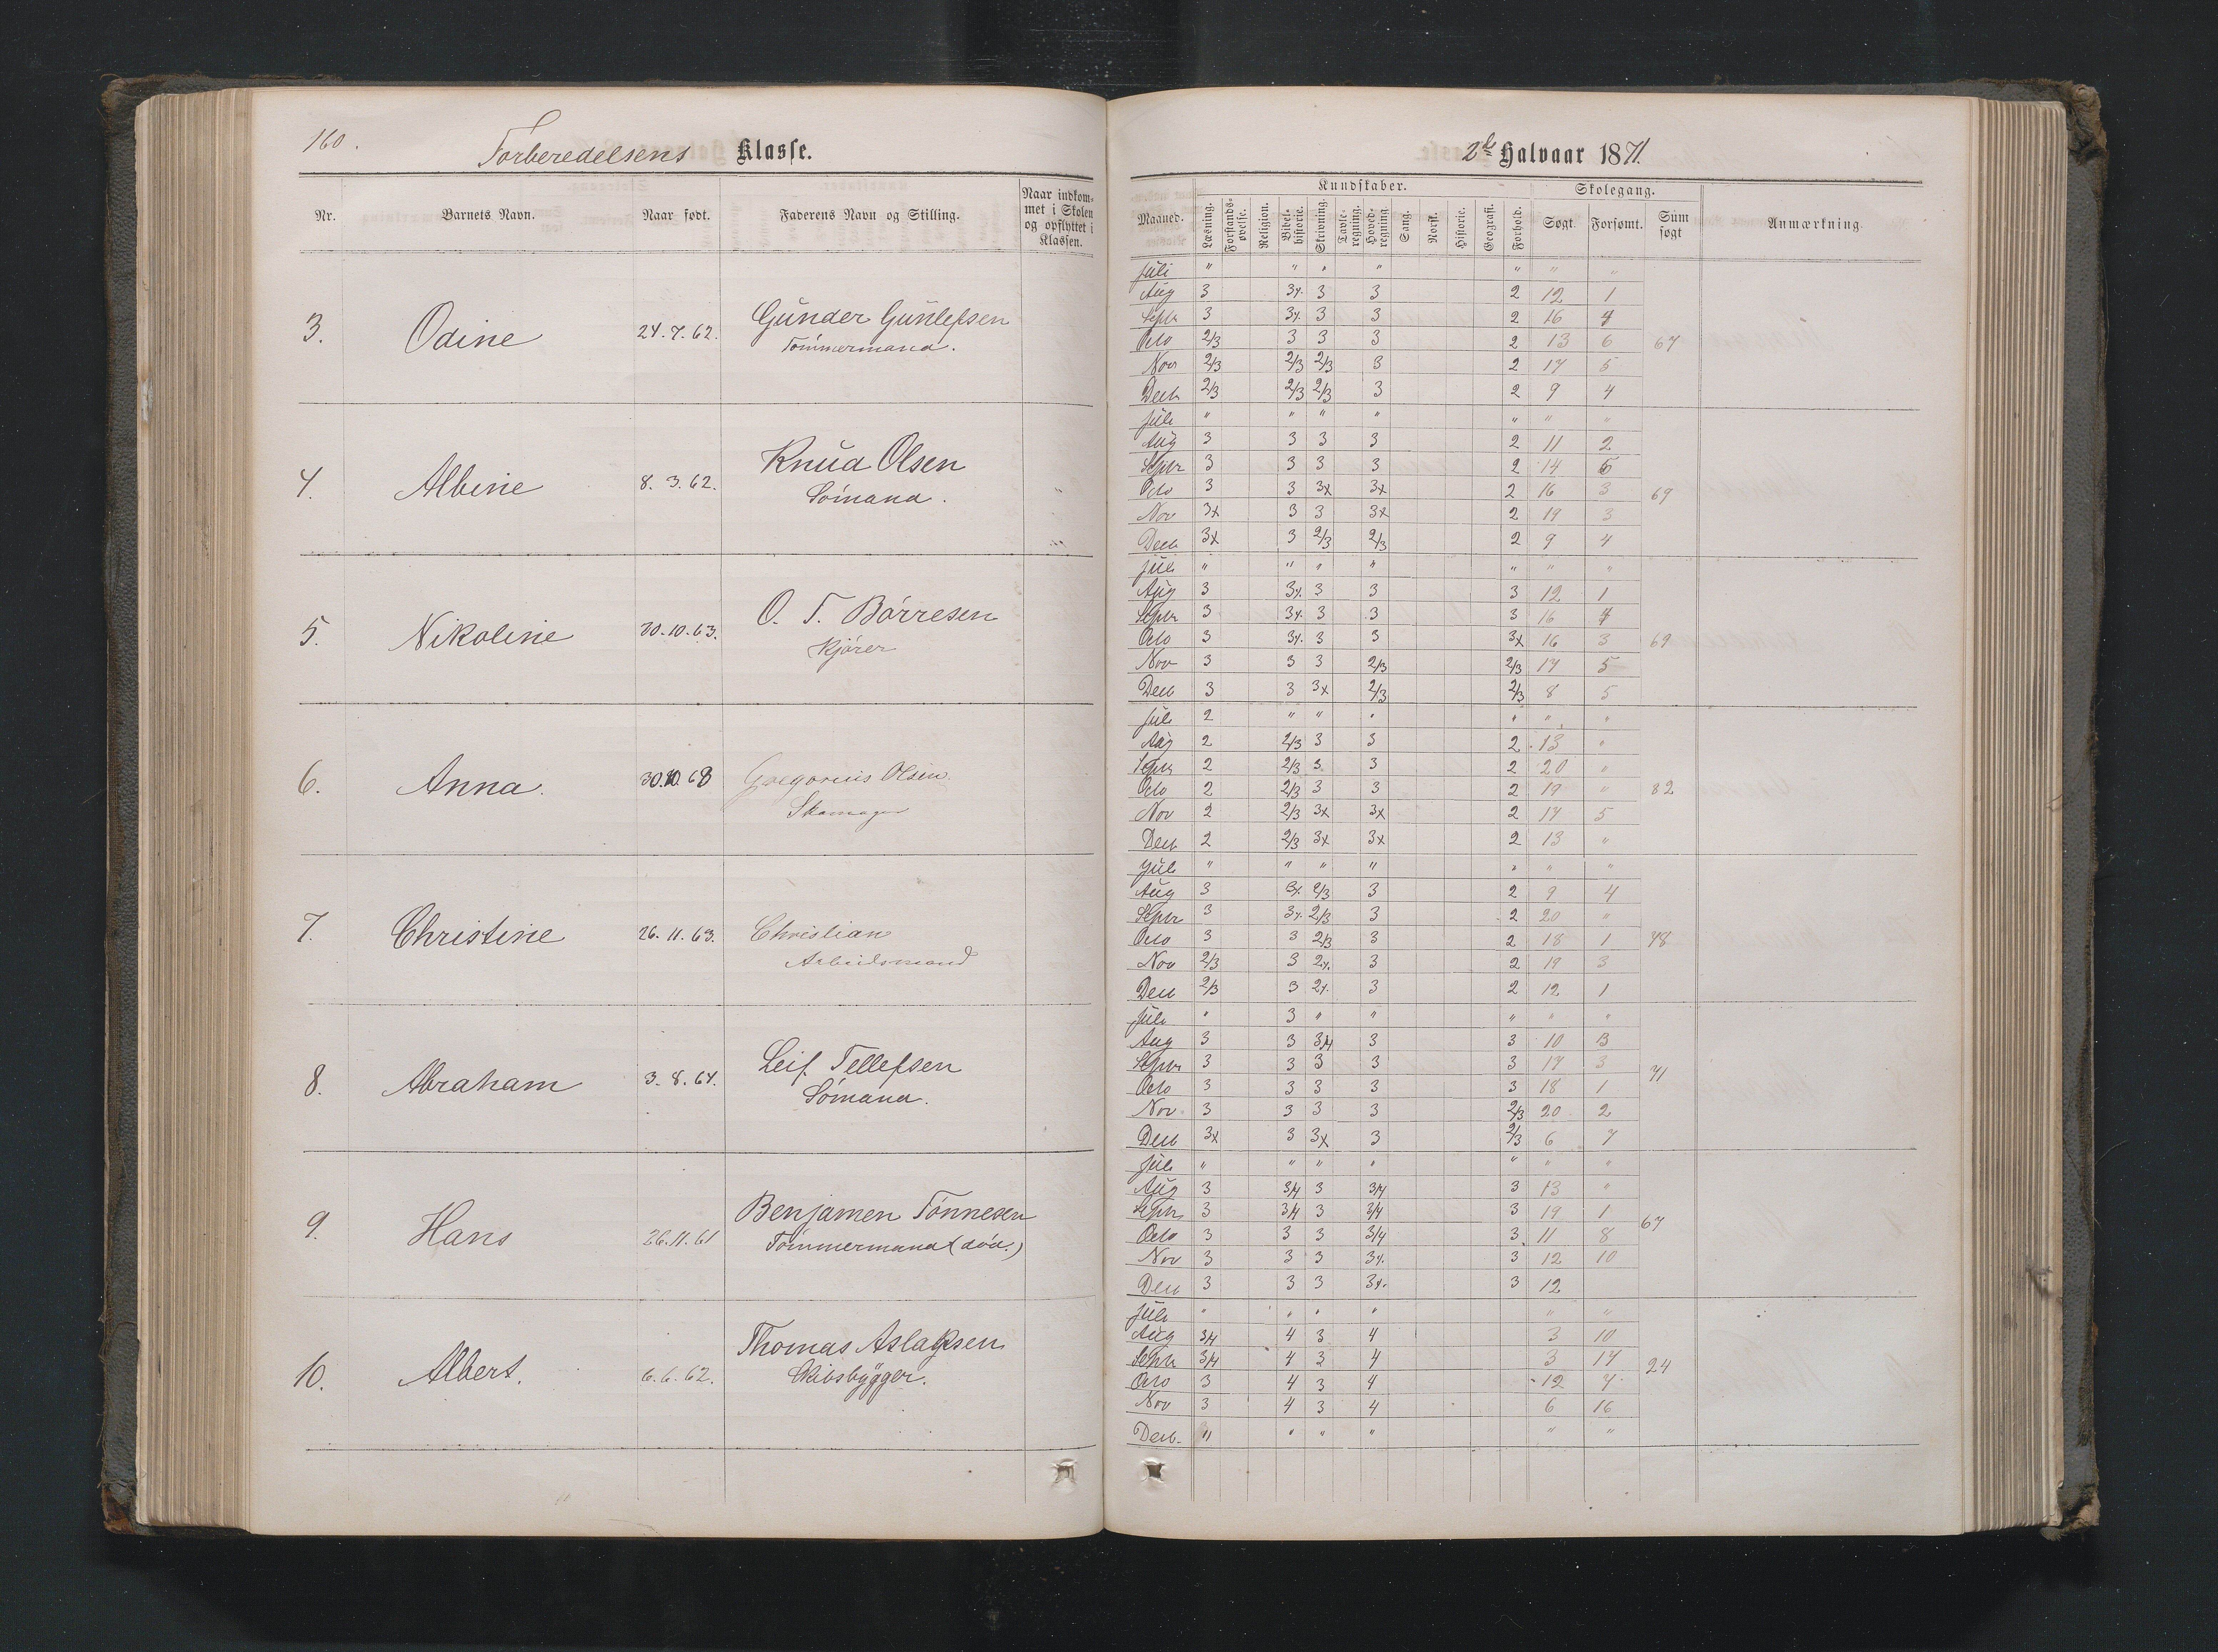 160.
Forberedelsens Klasse.
Nr. Barnets Navn. Naar født. Faderens Navn og Stilling. Naar indkommet i Skolen og opflyttet i Klassen.
3. Odine 24.7.62. Gunder Gunlefsen
Tømmermand.
4. Albine 8.3.62. Knud Olsen
Sømand.
5. Nikoline 30.10.63. O. T. Børresen
Kjører
6. Anna. 30.10.68 Gregorius Olsen
Skomager
7. Christine 26.11.63. Christian
Arbeidsmand
8. Abraham 3.8.64. Leif Tellefsen
Sømand.
9. Hans 26.11.61 Benjamen Tønnesen
Tømmermand (død.)
10. Albert. 6.6.62. Thomas Aslaksen
Skibsbygger.
2det Halvaar 1871.
Maaned. Kundskaber. Skolegang. Anmærkning.
Læsning. Forstandsøvelse. Religion. Bibelhistorie. Skrivning. Tavleregning. Hovedregning. Sang. Norsk. Historie. Geografi. Forhold. Søgt. Forsømt. Sum søgt
Juli " " " " " " "
Aug 3 3/4. 3 3 2 12 1
Septr 3 3/4. 3 3 2 16 4
Octo 2/3 3 3 3 2 13 6 67
Nov 2/3 2/3 2/3 3 2 17 5
Decb 2/3 2/3 2/3 3 2 9 4
Juli " " " " " " "
Aug 3 3 3 3 2 11 2
Septr 3 3 3 3 2 14 6
Octo 3 3 3x 3x 2 16 3 69
Nov 3x 3 3 3x 2 19 3
Decb 3x 3 2/3 2/3 2 9 4
Juli " " " " " " "
Aug 3 3/4. 3 3 3 12 1
Septr 3 3/4. 3 3 3 16 4
Octo 3 3/4. 3 3 3x 16 3 69
Nov 3 3 3 2/3 2/3 17 5
Decb 3 3 3x 2/3 2/3 8 5
Juli 2 " " " " " "
Aug 2 2/3 3 3 2 13 "
Septr 2 2/3 3 3 2 20 "
Octo 2 2/3 3 3 2 19 " 82
Nov 2 2/3 3x 3x 2 17 5
Decb 2 2/3 3x 3x 2 13 "
Juli " " " " " " "
Aug 3 3/4. 2/3 3 2 9 4
Septr 3 3/4. 2/3 3 2 20 "
Octo 3 3 2/3 3 2 18 1 78
Nov 2/3 3 2/. 3 2 19 3
Decb 2/3 3 2/. 3 2 12 1
Juli " 3 " " " " "
Aug 3 3 3/4 3 3 10 3
Septr 3 3 3 3 3 17 3
Octo 3 3 3 3 3 18 1 71
Nov. 3 3 3 3 2/3 20 2
Decb 3x 3 3x 3 2/3 6 7
Juli " " " " " " "
Aug 3 3/4 3 3/4 3 13 "
Septr 3 3/4 3 3/4 3 19 1
Octo 3 3 3 3/4 3 11 8 67
Nov 3 3 3 3/4. 3 12 10
Decb 3 3 3 3/4. 3 12
Juli " " " " " "
Aug 3/4 4 3 4 3 10
Septr 3/4 4 3 4 3 17
Octo 3 4 3 4 12 7 24
Nov 3 4 3 4 6 16
Decb. " " " " " "